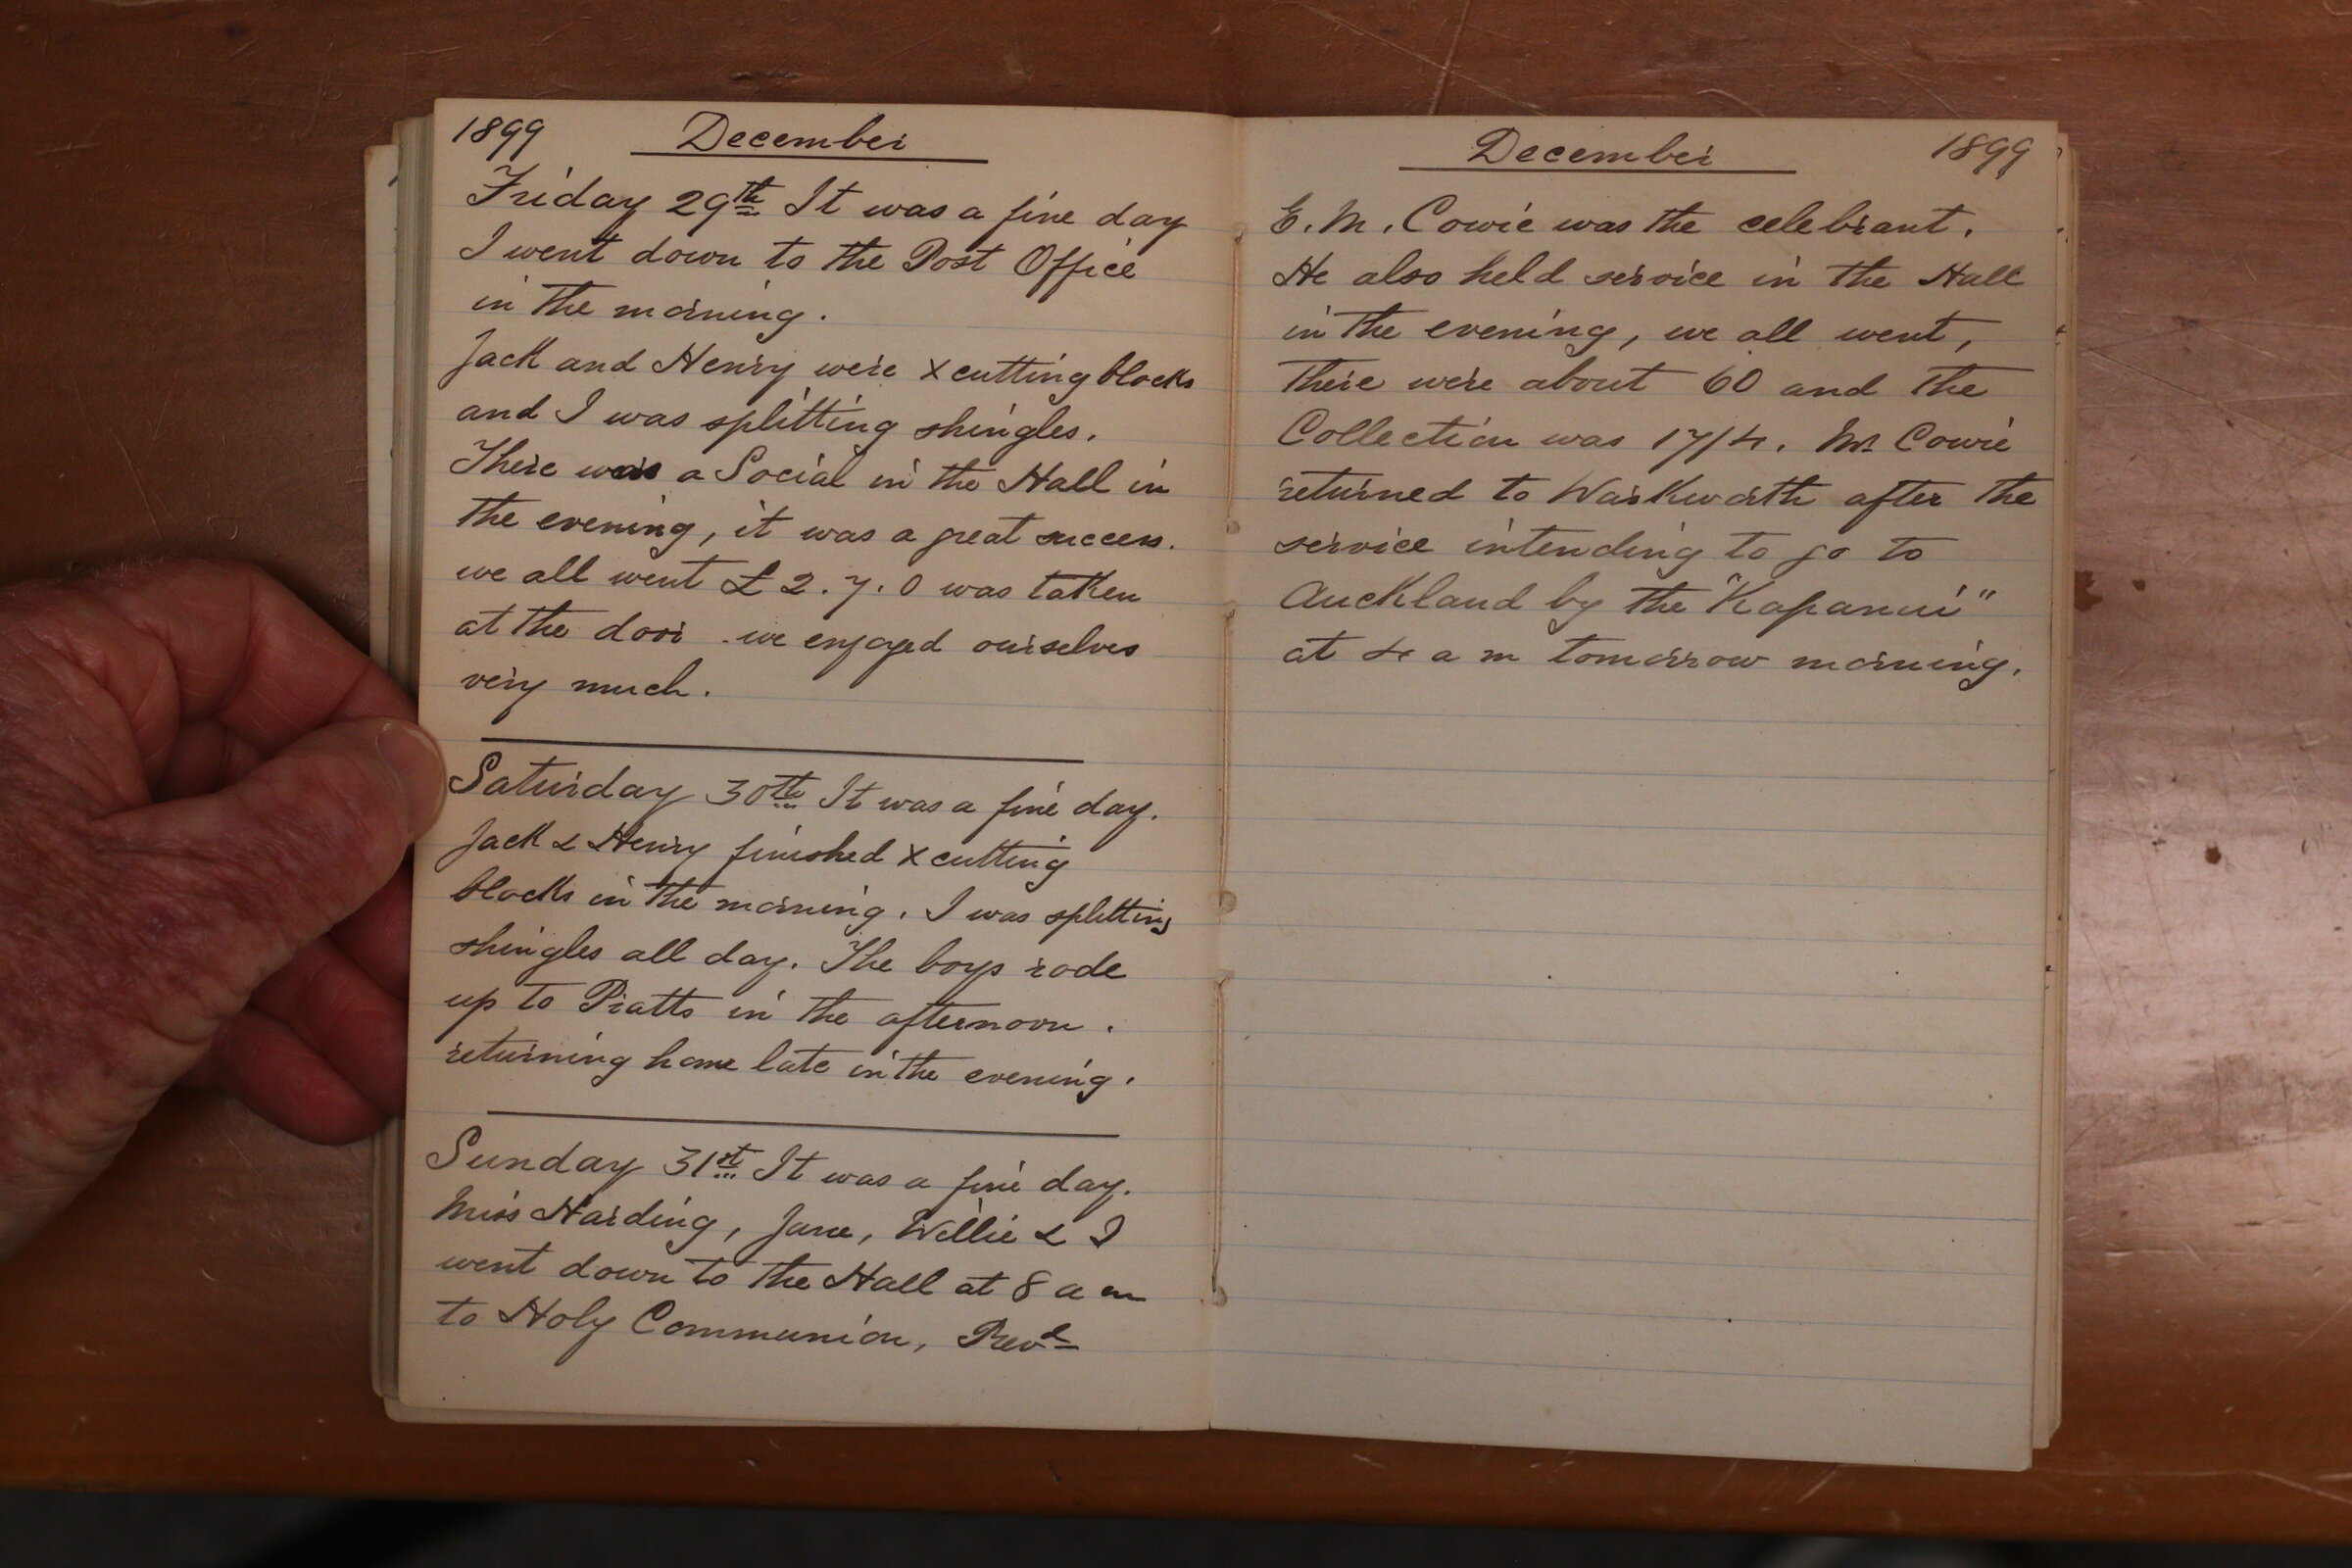 1899 December
Friday 29th It was a fine day
I went down to the Post Office
in the morning.
Jack and Henry were x cutting blocks
and I was splitting shingles.
There was a Social in the Hall in
the evening, it was a great success.
we all went £2.7.0 was taken
at the door. we enjoyed ourselves
very much.
Saturday 30th It was a fine day.
Jack & Henry finished x cutting
blocks in the morning. I was splitting
shingles all day. The boys rode
up to Pratts in the afternoon.
returning home late in the evening.
Sunday 31st It was a fine day.
Miss Harding, Jane, Willie & I
went down to the Hall at 8 a m
to Holy Communion, Revd
December 1899
E. M. Cowie was the celebrant.
He also held service in the Hall
in the evening, we all went,
There were about 60 and the
Collection was 17/4. Mr Cowie
returned to Warkworth after the
service intending to go to
Auckland by the "Kapanui"
at 4 a m tomorrow morning.